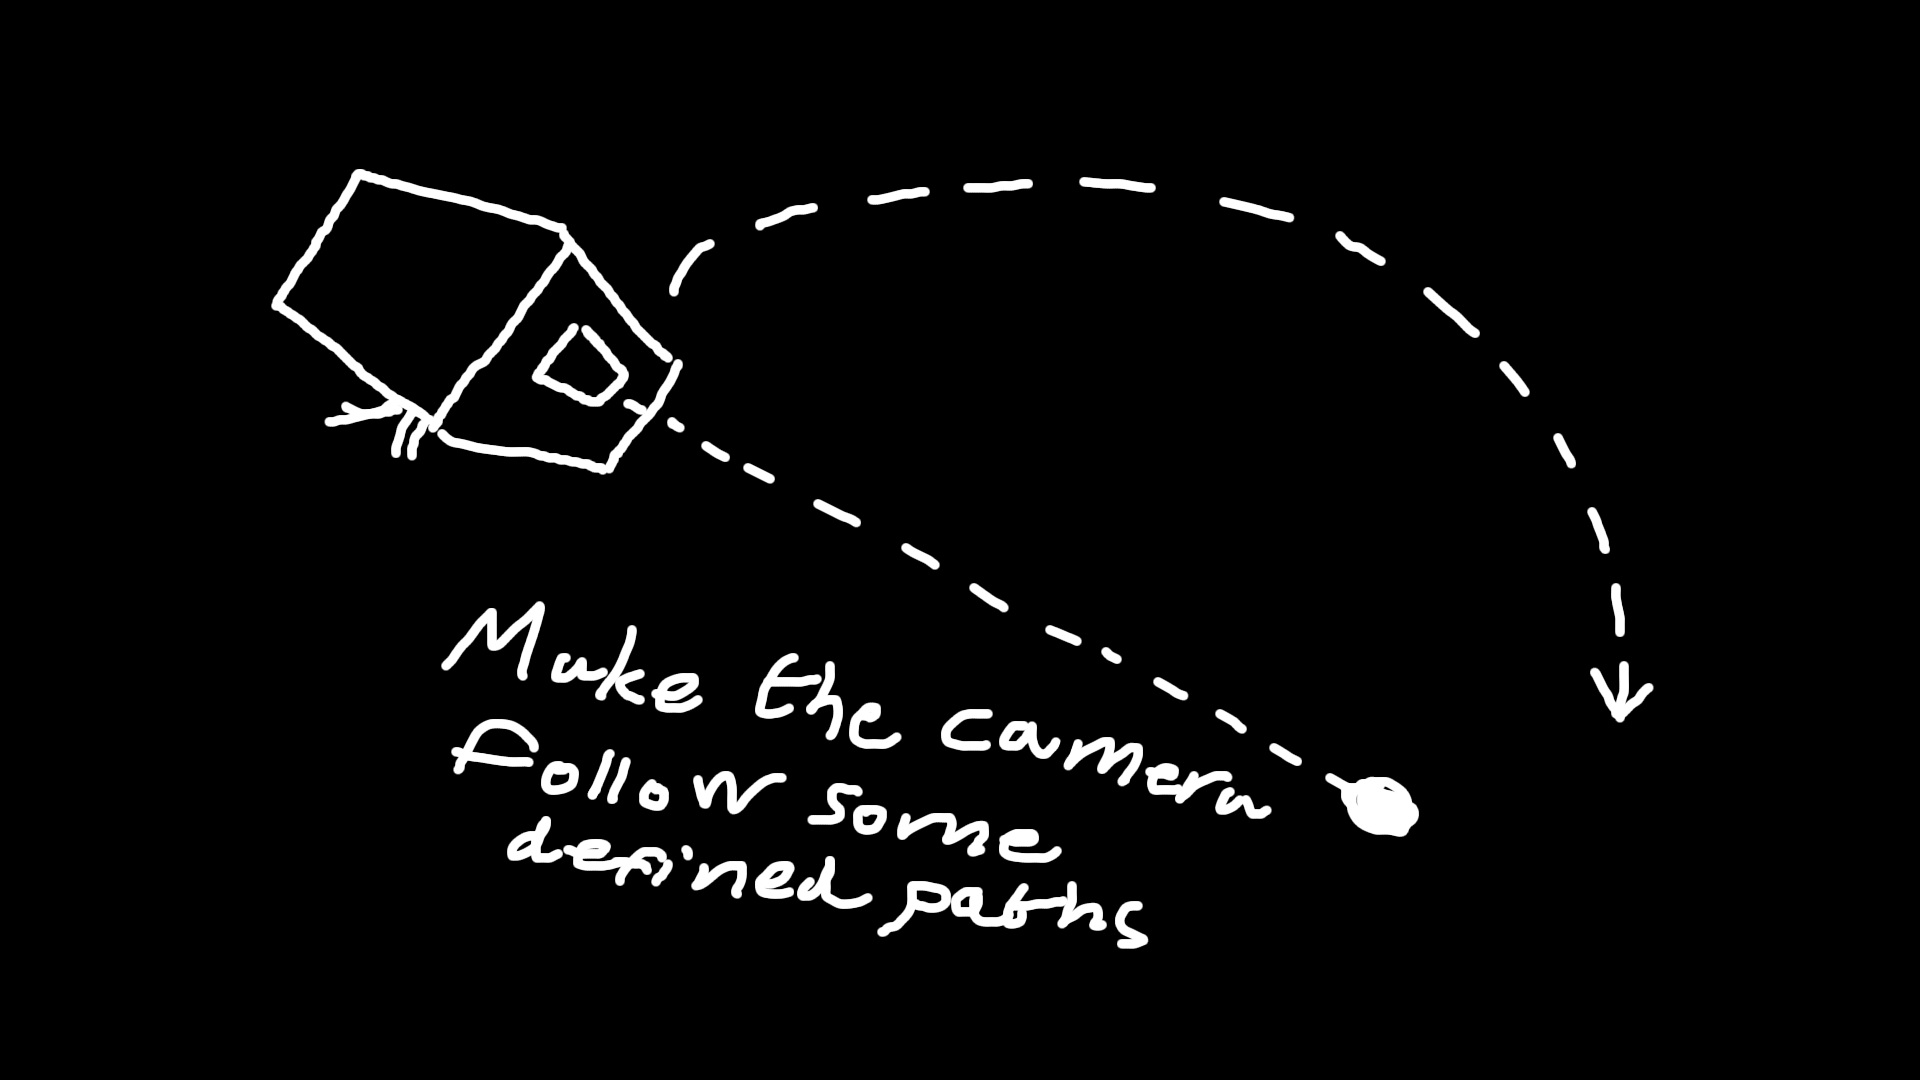 Make the camera
follow some
defined paths